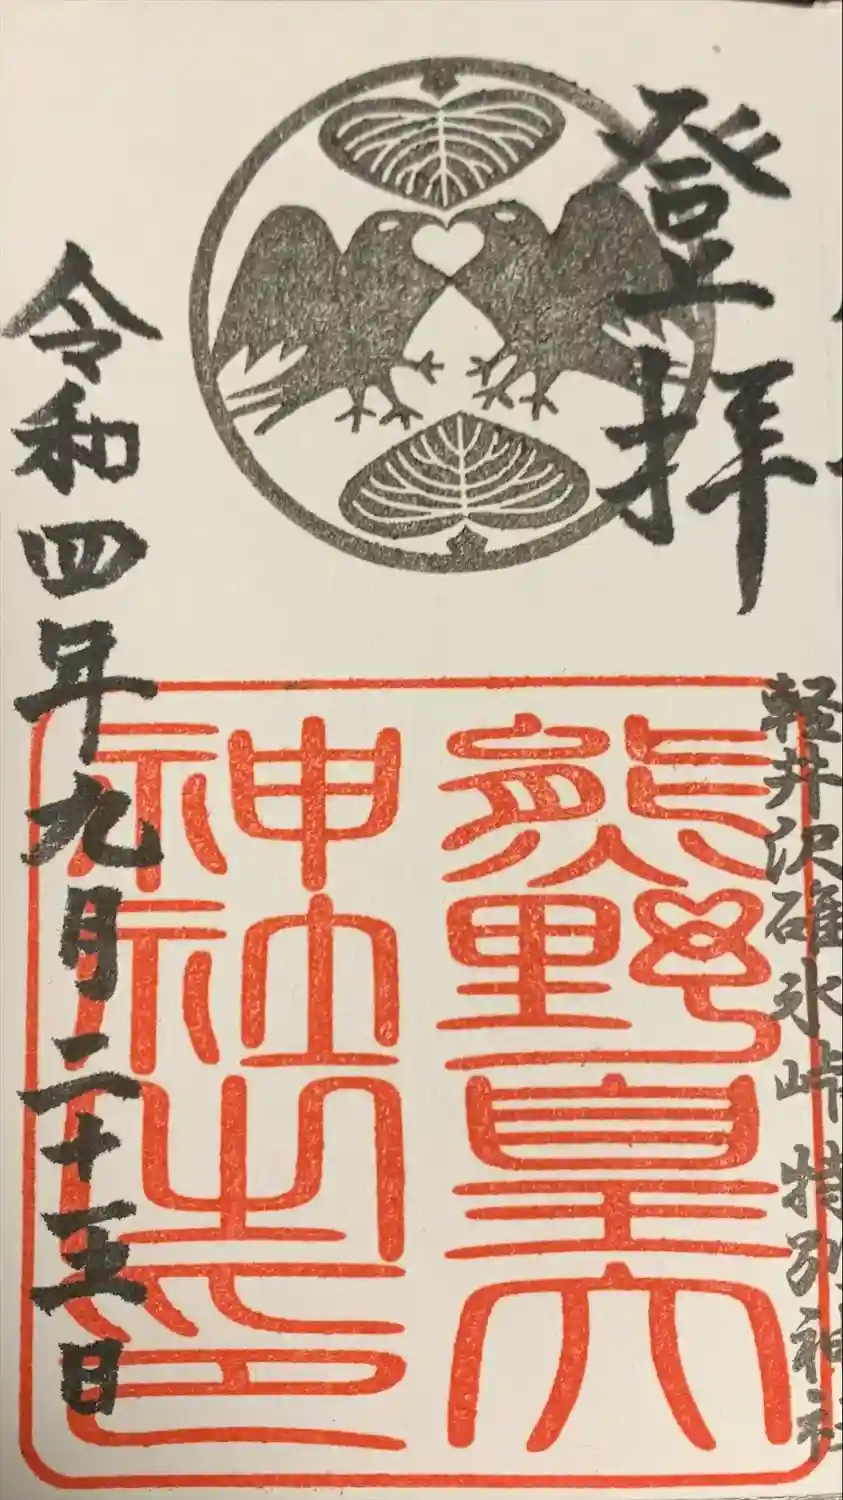 登拝
軽井沢碓氷峠特別神社
熊野皇大
神社之印
令和四年九月二十五日